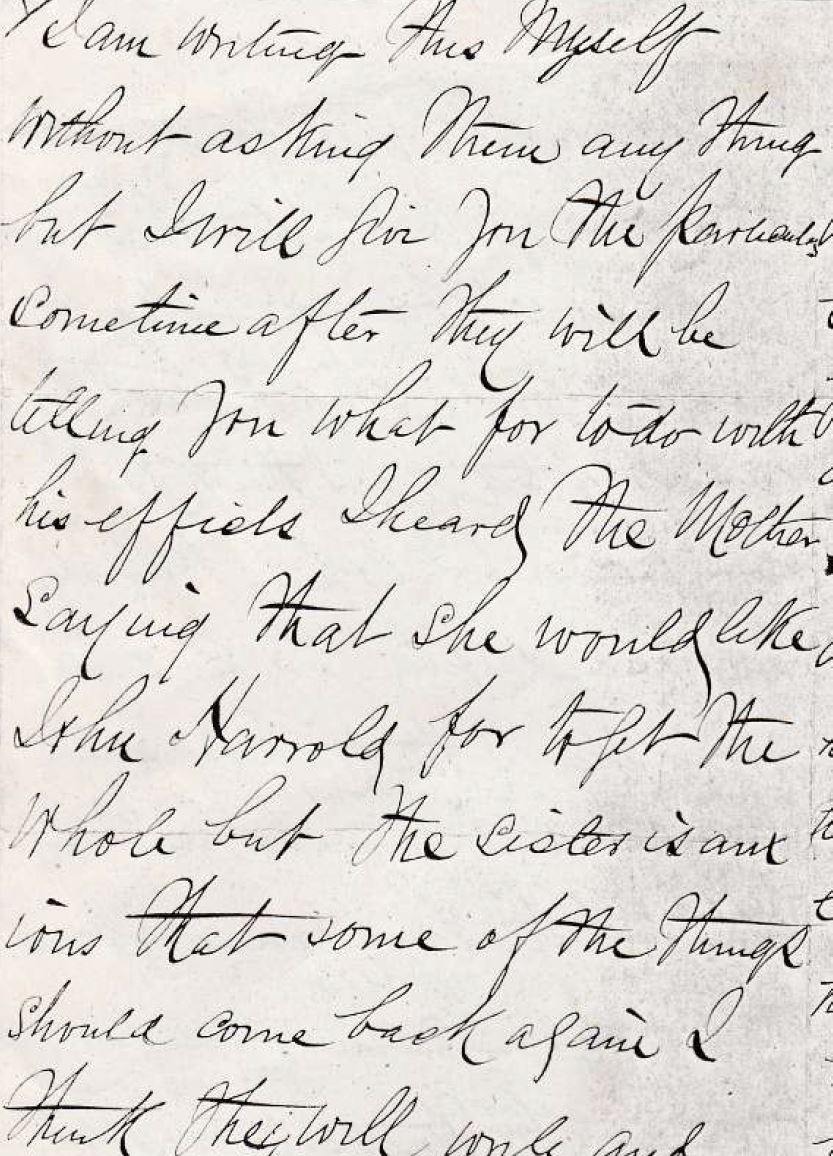 I am writing this Myself
without asking them any thing
but I will give you the particulars
sometime after they will be
telling you what for to do with
his effects I heard the Mother
saying that she would like
John Harrold for to get the
whole but the sister is anx
ious that some of the things
should come back again I
think they will write and